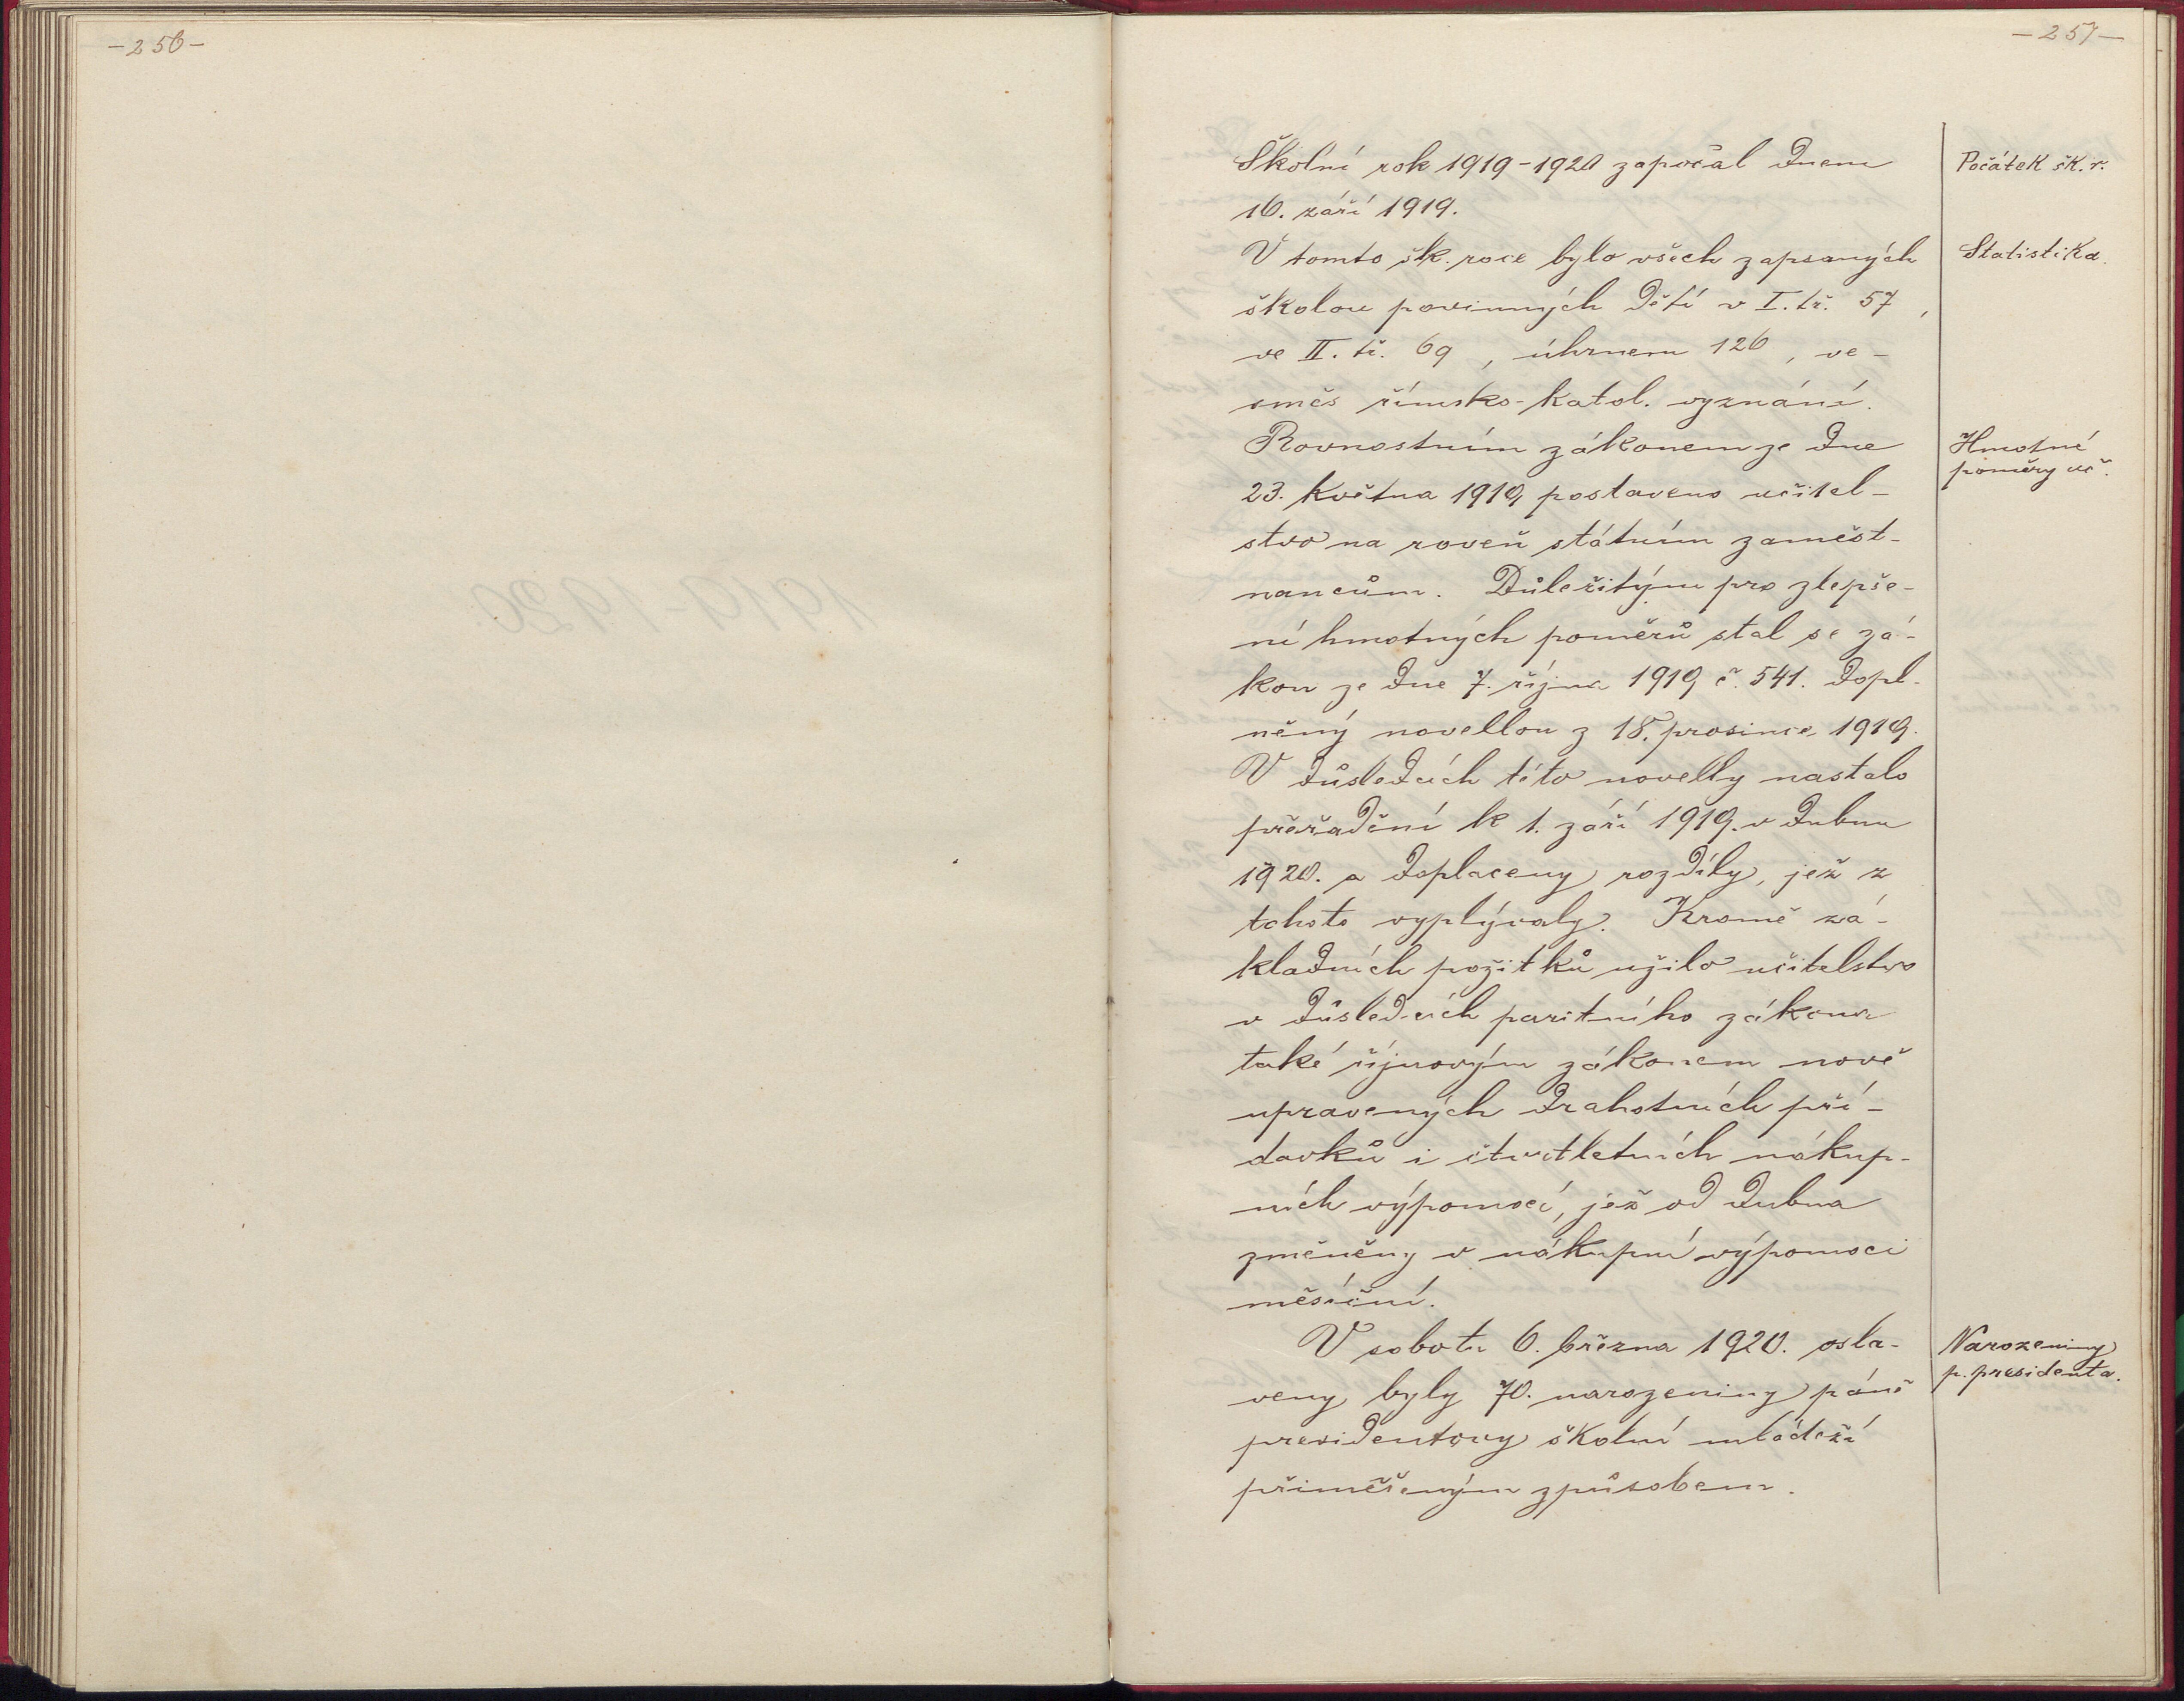 -256-
-257-
Školní rok 1919-1920 započal dnem
16. září 1919.
Počátek šk. r.
V tomto šk. roce bylo všech zapsaných
školou povinných dětí v I. tř. 57,
ve II. tř. 69, úhrnem 126, ve-
směs římsko-katol. vyznání.
Statistika.
Rovnostním zákonem ze dne
23. května 1919 postaveno učitel-
stvo na roveň státním zaměst-
nancům. Důležitým pro zlepše-
ní hmotných poměrů stal se zá-
kon ze dne 7. října 1919 č. 541. dopl-
něný novellou z 18. prosince 1919.
V důsledcích této novelly nastalo
přeřadění k 1. září 1919. v dubnu
1920. a doplaceny rozdíly, jež z
tohoto vyplývaly. Kromě zá-
kladních požitků užilo učitelstvo
v důsledcích paritního zákona
také říjnovým zákonem nově
upravených drahotních pří-
davků i čtvrtletních nákup-
ních výpomocí, jež od dubna
změněny v nákupní výpomoci
měsíční.
Hmotné
poměry uč.
V sobotu 6. března 1920. osla-
veny byly 70. narozeniny páně
presidentovy školní mládeží
přiměřeným způsobem.
Narozeniny
p. presidenta.